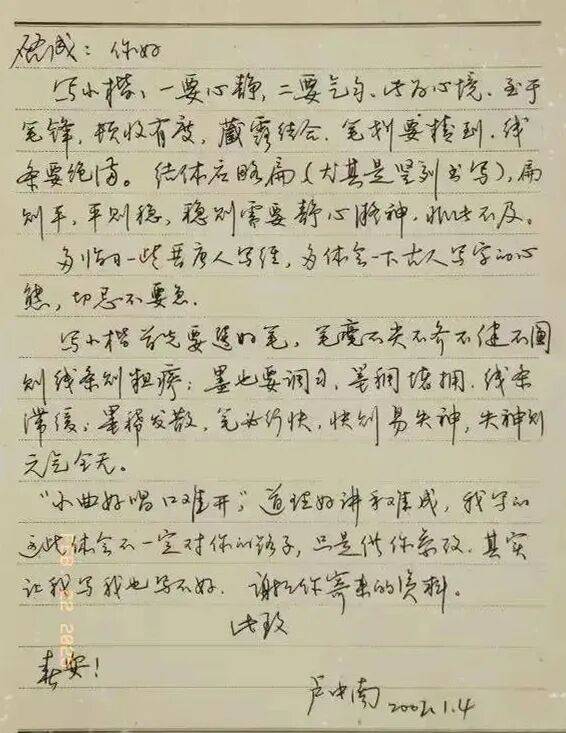 启诚：你好
写小楷，一要心静，二要气匀，此为心境。至于
笔锋，顿收有度，藏露结合，笔划要精到，线
条要饱满。结体应略扁（尤其是竖列书写），扁
则平，平则稳，稳则需要静心凝神，非此不及。
多临习一些晋唐人写经，多体会一下古人写字的心
态，切忌不要急。
写小楷首先要选好笔，笔度不尖不齐不健不圆
则线条则粗疼；墨也要调匀，墨稠堵拥，线条
滞缓；墨稀发散，笔必行快，快则易失神，失神则
元气全无。
“小曲好唱口难开”，道理好讲手难成，我写的
这些体会不一定对你的路子，只是供你参改。其实
让我写我也写不好。谢谢你寄来的资料。
此致
春安！
卢中南 2002.1.4